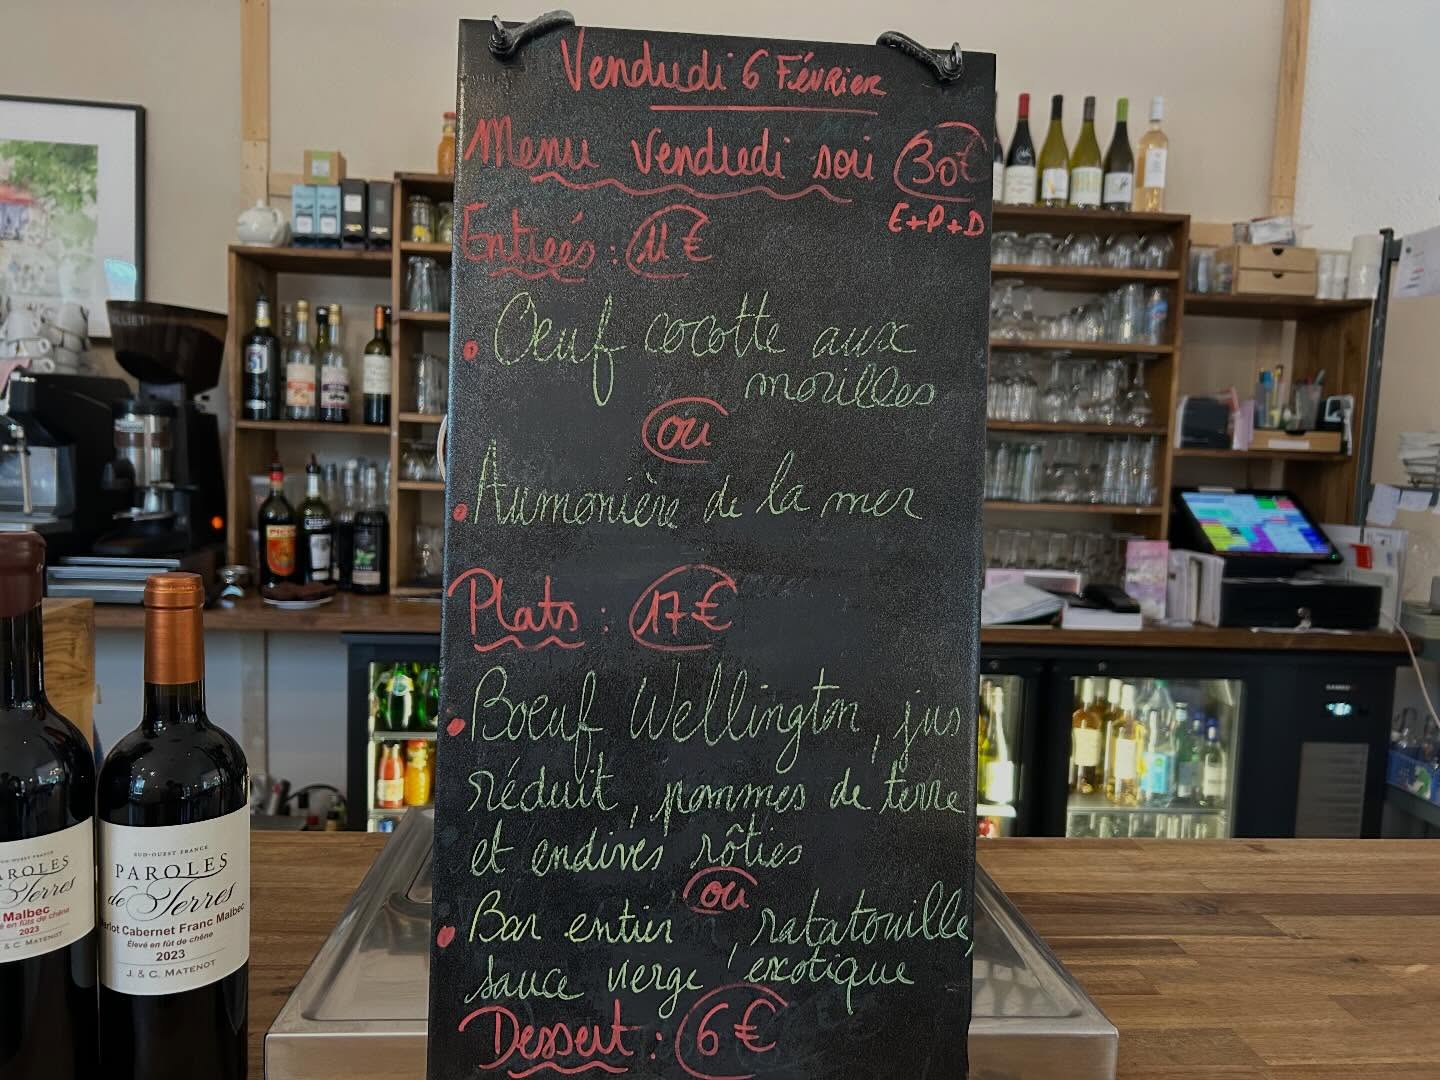 Vendredi 6 Février
Menu Vendredi soir 30€
E+P+D
Entrées : 11€
Oeuf cocotte aux
morilles
ou
Aumonière de la mer
Plats : 17€
Boeuf Wellington, jus
réduit, pommes de terre
et endives rôties
ou
Bar entier, ratatouille,
sauce vierge exotique
Dessert : 6€
AROLES
Terres
Malbec
é en fûts de chêne
2023
& C. MATENOT
SUD-OUEST FRANCE
PAROLES
de Terres
erlot Cabernet Franc Malbec
Élevé en fût de chêne
2023
J. & C. MATENOT